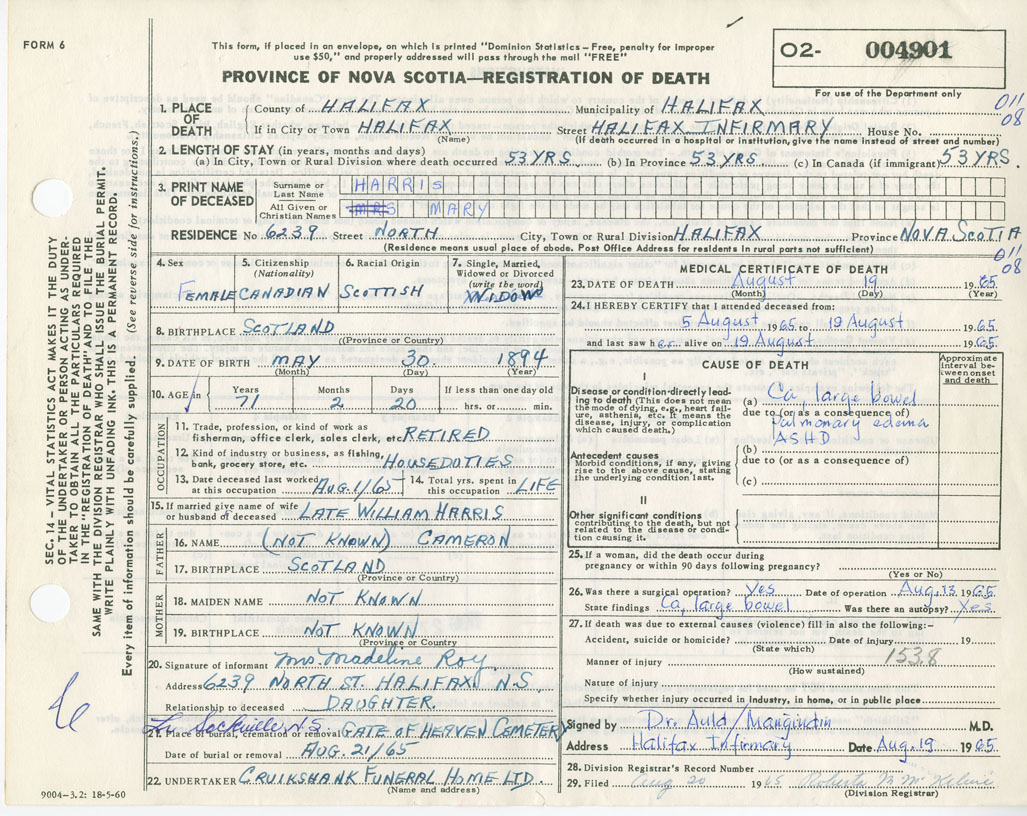 FORM 6
This form, if placed in an envelope, on which is printed "Dominion Statistics – Free, penalty for improper
use $50," and properly addressed will pass through the mail "FREE"
PROVINCE OF NOVA SCOTIA—REGISTRATION OF DEATH
02- 004901
For use of the Department only
011
08
1. PLACE OF DEATH
County of HALIFAX Municipality of HALIFAX
If in City or Town HALIFAX Street HALIFAX INFIRMARY House No.
(Name) (If death occurred in a hospital or institution, give the name instead of street and number)
2. LENGTH OF STAY (in years, months and days)
(a) In City, Town or Rural Division where death occurred 53 YRS. (b) In Province 53 YRS. (c) In Canada (if immigrant) 53 YRS.
3. PRINT NAME OF DECEASED
Surname or Last Name HARRIS
All Given or Christian Names MRS MARY
RESIDENCE No 6239 Street NORTH City, Town or Rural Division HALIFAX Province NOVA SCOTIA
(Residence means usual place of abode. Post Office Address for residents in rural parts not sufficient)
011
08
4. Sex
FEMALE
5. Citizenship (Nationality)
CANADIAN
6. Racial Origin
SCOTTISH
7. Single, Married, Widowed or Divorced (write the word)
WIDOW
8. BIRTHPLACE SCOTLAND
(Province or Country)
9. DATE OF BIRTH MAY 30. 1894
(Month) (Day) (Year)
10. AGE in Years Months Days If less than one day old
71 2 20 hrs. or min.
OCCUPATION
11. Trade, profession, or kind of work as
fisherman, office clerk, sales clerk, etc. RETIRED
12. Kind of industry or business, as fishing,
bank, grocery store, etc. HOUSEDUTIES
13. Date deceased last worked at this occupation AUG. 1/65 14. Total yrs. spent in this occupation LIFE
15. If married give name of wife
or husband of deceased LATE WILLIAM HARRIS
FATHER
16. NAME (NOT KNOWN) CAMERON
17. BIRTHPLACE SCOTLAND
(Province or Country)
MOTHER
18. MAIDEN NAME NOT KNOWN
19. BIRTHPLACE NOT KNOWN
(Province or Country)
20. Signature of informant Mrs. Madeline Roy.
Address 6239 NORTH ST. HALIFAX, N.S.
Relationship to deceased DAUGHTER.
Sackville N.S.
21. Place of burial, removal GATE OF HEAVEN CEMETERY
Date of burial or removal AUG. 21/65
22. UNDERTAKER CRUIKSHANK FUNERAL HOME LTD.
(Name and address)
9004–3.2: 18-5-60
MEDICAL CERTIFICATE OF DEATH
23. DATE OF DEATH August 19 1965
(Month) (Day) (Year)
24. I HEREBY CERTIFY that I attended deceased from:
5 August 1965 to 19 August 1965
and last saw her alive on 19 August 1965
CAUSE OF DEATH
Approximate interval between onset and death
I
Disease or condition directly leading to death (This does not mean the mode of dying, e.g., heart failure, asthenia, etc. It means the disease, injury, or complication which caused death.)
(a) Ca, large bowel
due to (or as a consequence of)
Pulmonary edema
ASHD
Antecedent causes
Morbid conditions, if any, giving rise to the above cause, stating the underlying condition last.
(b)
due to (or as a consequence of)
(c)
II
Other significant conditions
contributing to the death, but not related to the disease or condition causing it.
25. If a woman, did the death occur during
pregnancy or within 90 days following pregnancy?
(Yes or No)
26. Was there a surgical operation? Yes Date of operation Aug. 13 1965
State findings Ca, large bowel Was there an autopsy? Yes
27. If death was due to external causes (violence) fill in also the following:–
Accident, suicide or homicide? Date of injury 19
(State which)
153.8
Manner of injury
(How sustained)
Nature of injury
Specify whether injury occurred in industry, in home, or in public place
Signed by Dr. Auld / Mangundin M.D.
Address Halifax Infirmary Date Aug. 19 1965
28. Division Registrar's Record Number
29. Filed Aug 20 1965 Roberta B. McKelvie
(Division Registrar)
SEC. 14 – VITAL STATISTICS ACT MAKES IT THE DUTY
OF THE UNDERTAKER OR PERSON ACTING AS UNDER-
TAKER TO OBTAIN ALL THE PARTICULARS REQUIRED
IN THE "REGISTRATION OF DEATH" AND TO FILE THE
SAME WITH THE DIVISION REGISTRAR WHO SHALL ISSUE THE BURIAL PERMIT.
WRITE PLAINLY WITH UNFADING INK. THIS IS A PERMANENT RECORD.
Every item of information should be carefully supplied. (See reverse side for instructions.)